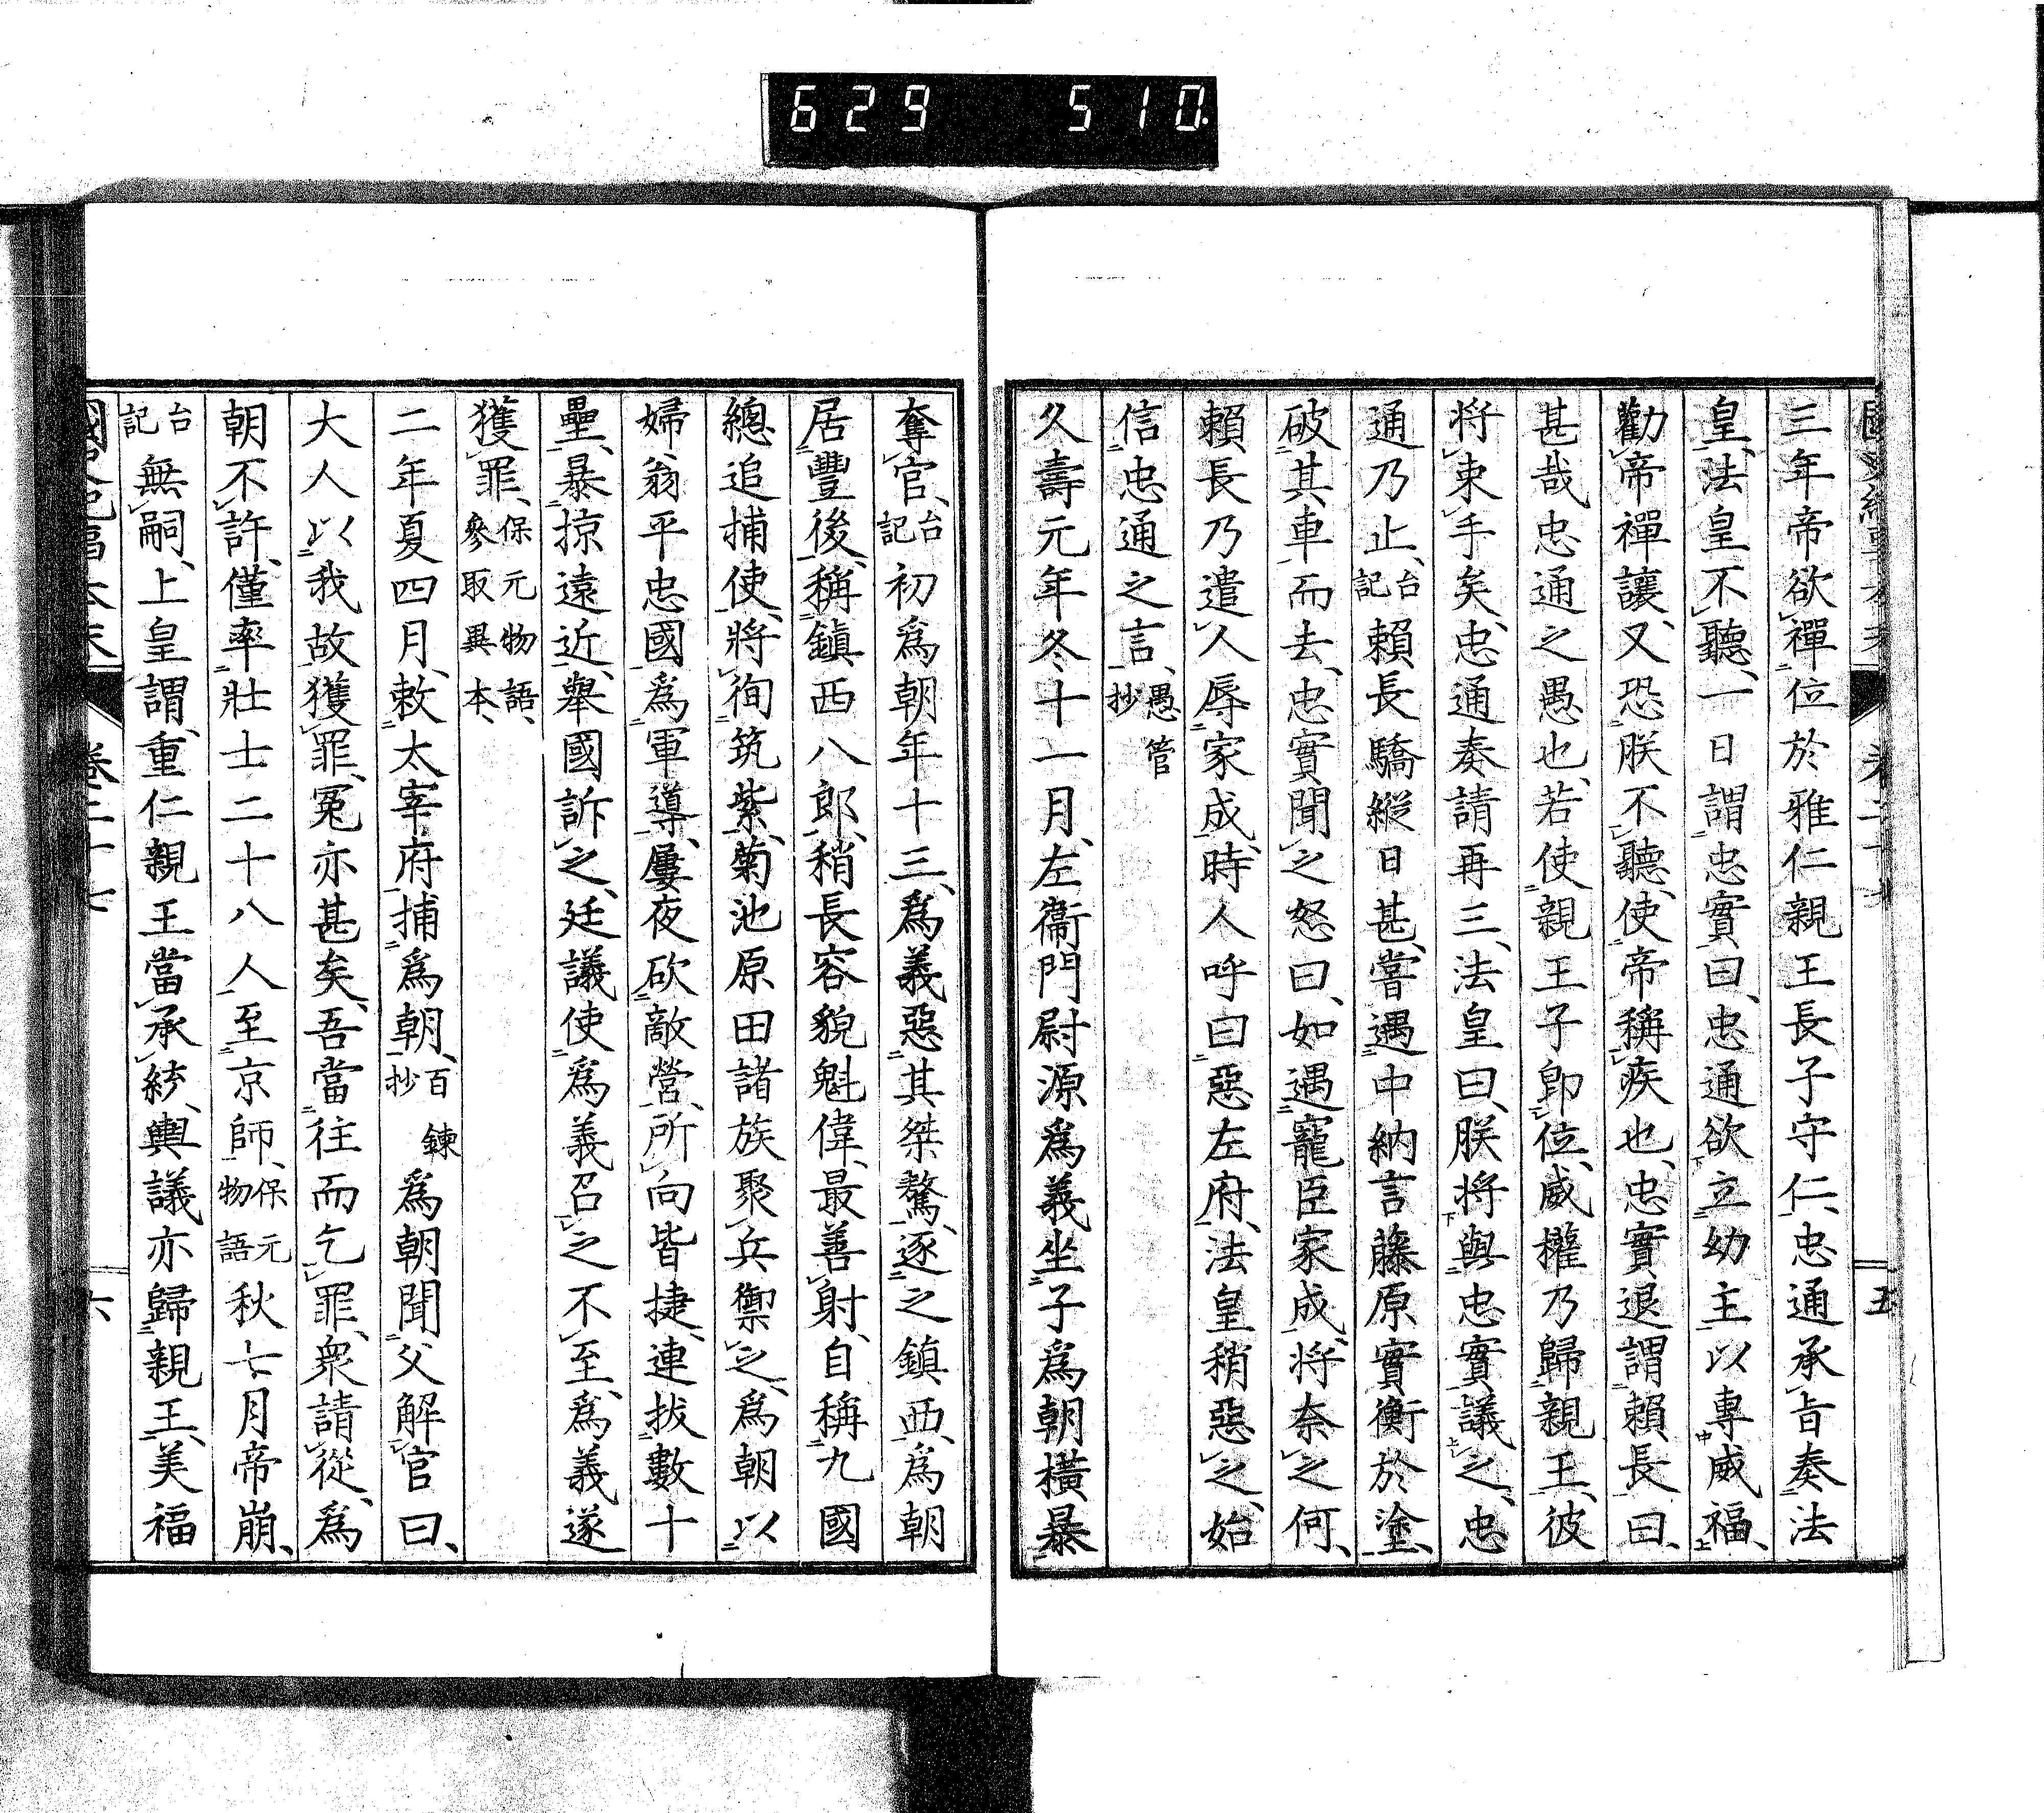 629 510
三年帝欲禪位於雅仁親王長子守仁、忠通承旨奏法
皇、法皇不聽、一日謂忠實曰、忠通欲立幼主以專威福、
勸帝禪讓、又恐朕不聽、使帝稱疾也、忠實退謂賴長曰、
甚哉忠通之愚也、若使親王子卽位、威權乃歸親王、彼
將束手矣、忠通奏請再三、法皇曰、朕將與忠實議之、忠
通乃止、台記賴長驕縱日甚、嘗遇中納言藤原實衡於塗、
破其車而去、忠實聞之怒曰、如遇寵臣家成、將奈之何、
賴長乃遣人辱家成、時人呼曰惡左府、法皇稍惡之、始
信忠通之言、愚管抄
久壽元年冬十一月、左衞門尉源爲義坐子爲朝橫暴
奪官、台記初爲朝年十三、爲義惡其桀驁、逐之鎮西、爲朝
居豐後、稱鎮西八郎、稍長容貌魁偉、最善射、自稱九國
總追捕使、將徇筑紫、菊池原田諸族聚兵禦之、爲朝以
婦翁平忠國爲軍導、屢夜砍敵營、所向皆捷、連拔數十
壘、暴掠遠近、舉國訴之、廷議使爲義召之不至、爲義遂
獲罪、保元物語、參取異本、
二年夏四月、敕太宰府捕爲朝、百鍊抄爲朝聞父解官曰、
大人以我故獲罪、冤亦甚矣、吾當往而乞罪、衆請從、爲
朝不許、僅率壯士二十八人至京師、保元物語秋七月帝崩、
台記無嗣、上皇謂、重仁親王當承統、輿議亦歸親王、美福
卷二十七
五
六